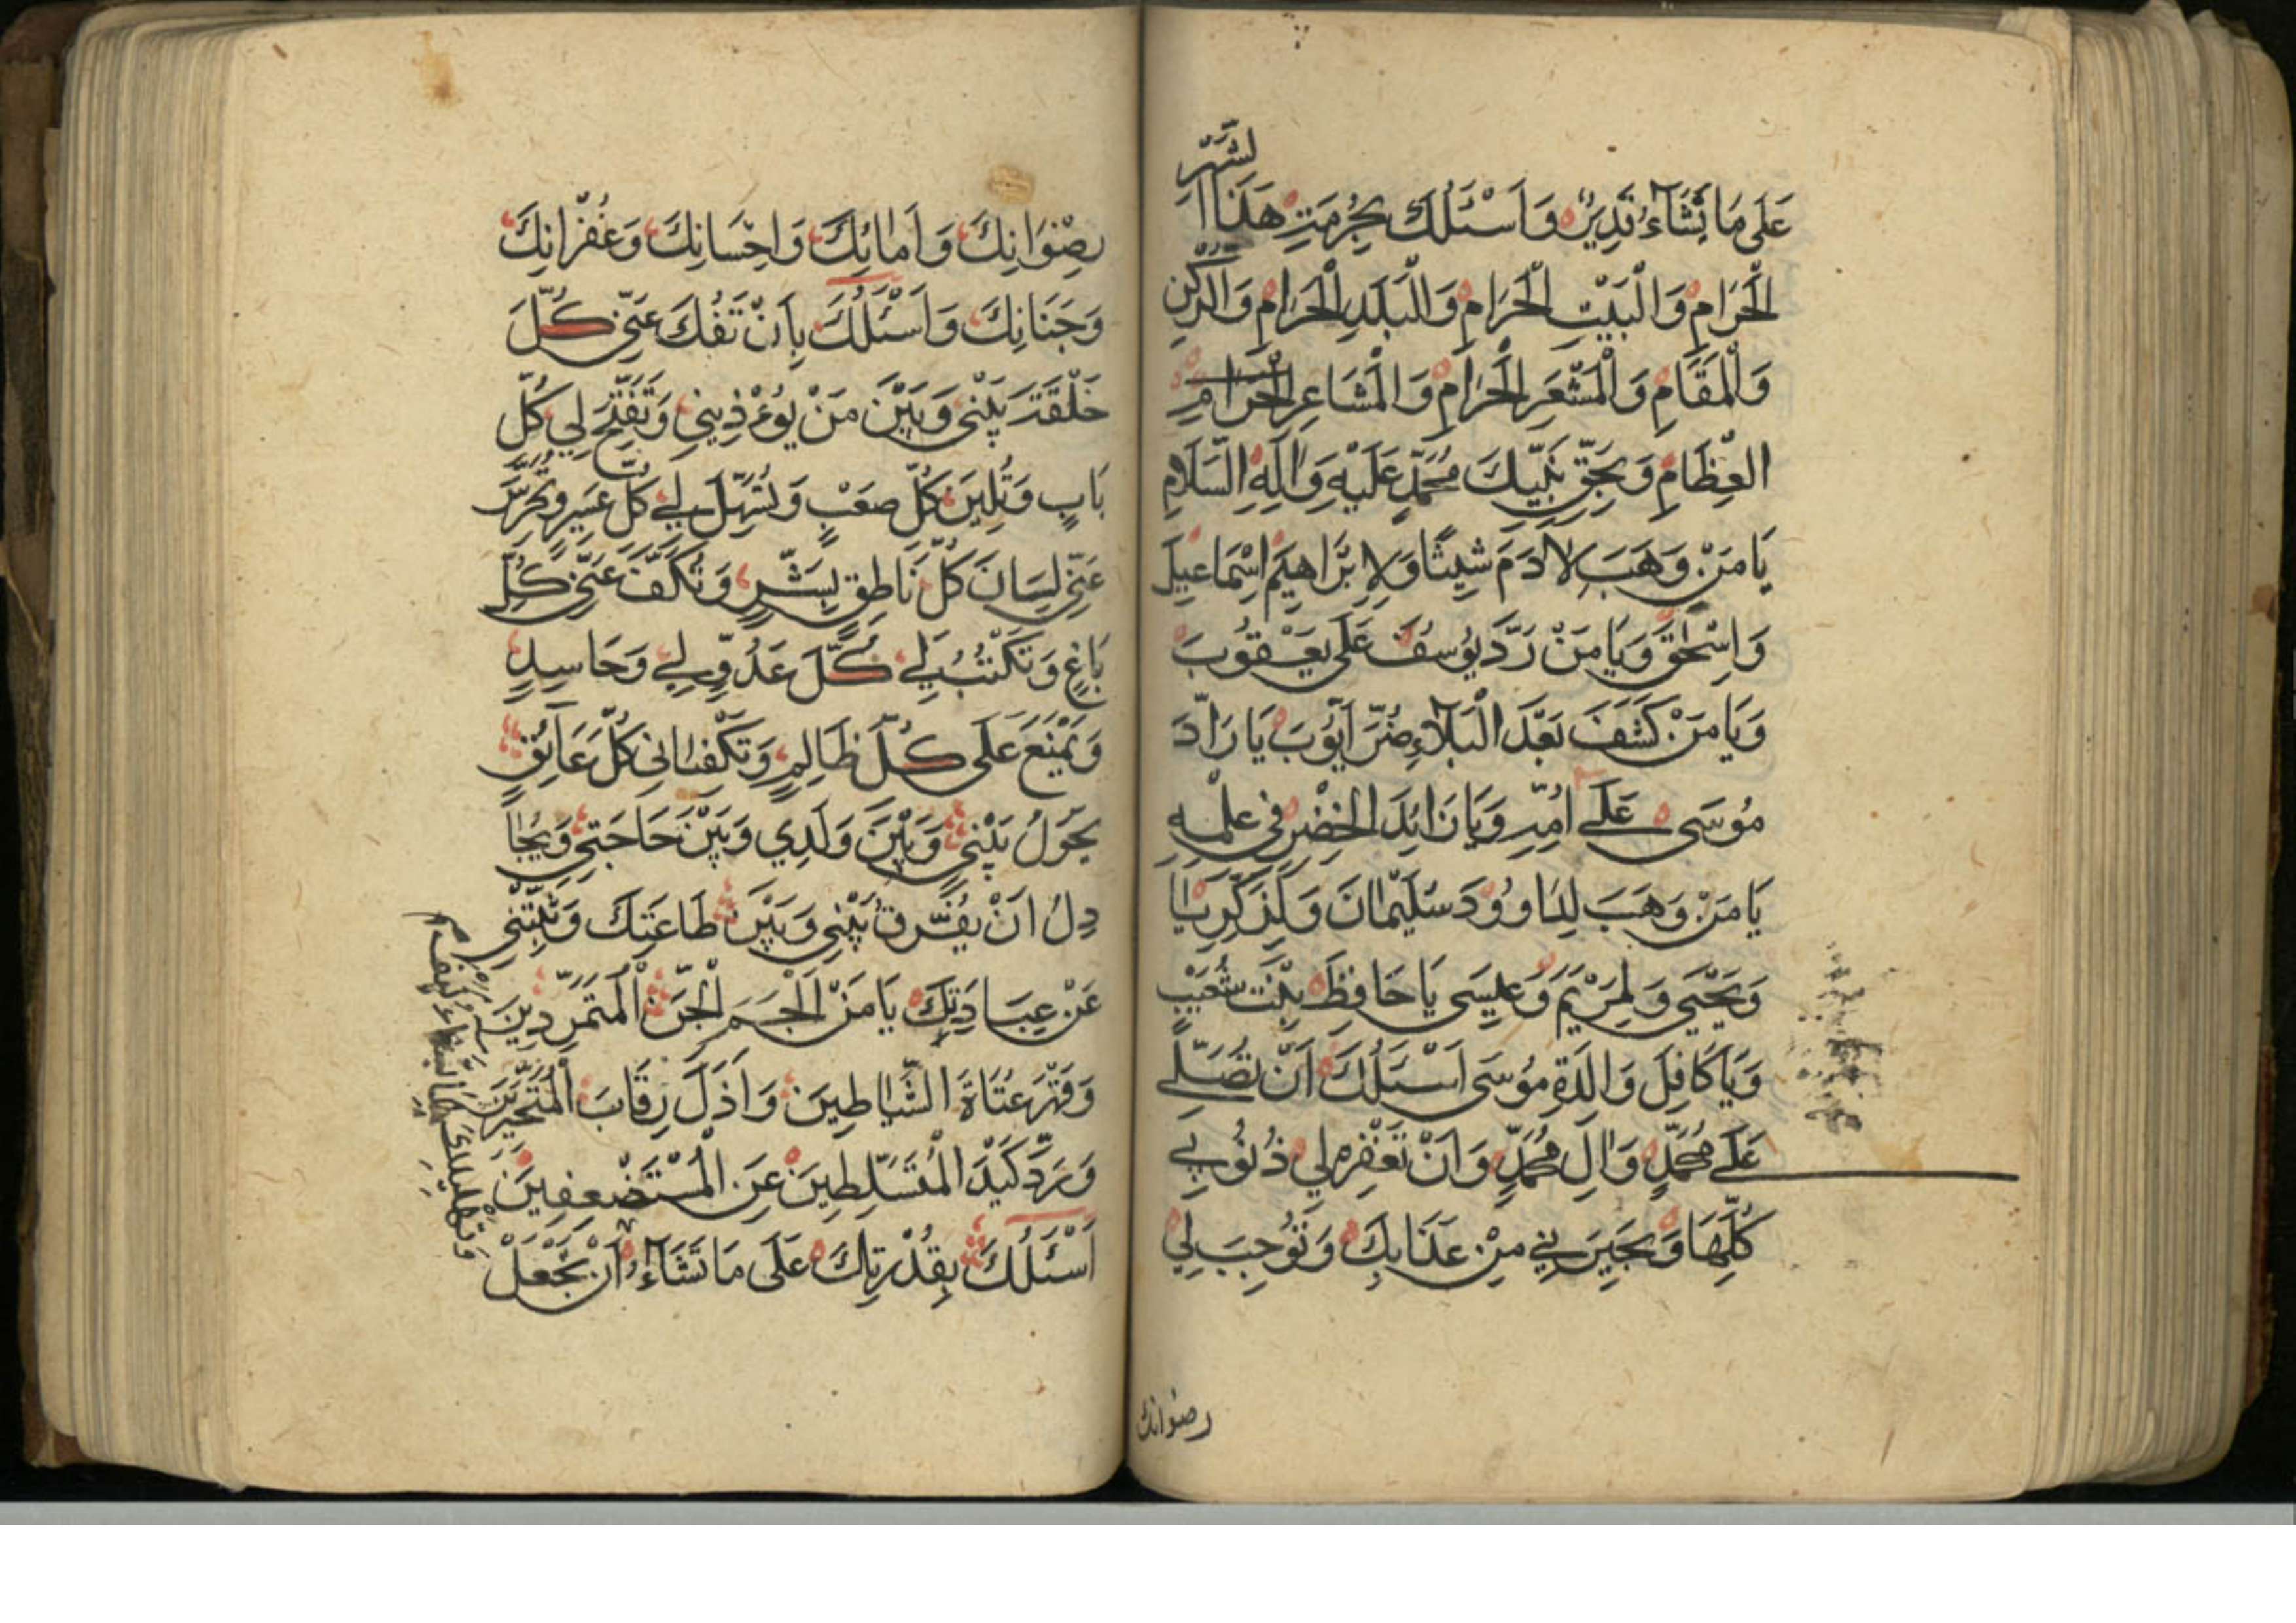 لشهر
عَلَى مَا تَشَآءُ قَدِيرٌ وَاَسْئَلُكَ بِحُرْمَتِ هَذَا ا
الْحَرَامِ وَالْبَيْتِ الْحَرَامِ وَالْبَلَدِ الْحَرَامِ وَالرُّكْنِ
وَالْمَقَامِ وَالْمَشْعَرِ الْحَرَامِ وَالْمَشَاعِرِ الْحَرَامِ
الْعِظَامِ وَبِحَقِّ نَبِيِّكَ مُحَمَّدٍ عَلَيْهِ وَاٰلِهِ السَّلَامِ
يَا مَنْ وَهَبَ لِاٰدَمَ شِيثًا وَلِاِبْرَاهِيمَ اِسْمَاعِيلَ
وَاِسْحٰقَ وَيَا مَنْ رَدَّ يُوسُفَ عَلَى يَعْقُوبَ
وَيَا مَنْ كَشَفَ بَعْدَ الْبَلَآءِ ضُرَّ اَيُّوبَ يَا رَادَّ
مُوسَى عَلَى اُمِّهِ وَيَا زَائِدَ الْخِضْرِ فِي عِلْمِهِ
يَا مَنْ وَهَبَ لِدَاوُودَ سُلَيْمٰانَ وَلِزَكَرِيّٰا
وَيَحْيَى وَلِمَرْيَمَ وَعِيسَى يَا حَافِظَ بِنْتِ شُعَيْبٍ
وَيَا كَافِلَ وَالِدَةِ مُوسَى اَسْئَلُكَ اَنْ تُصَلِّيَ
عَلَى مُحَمَّدٍ وَاٰلِ مُحَمَّدٍ وَاَنْ تَغْفِرَ لِي ذُنُوبِي
كُلِّهَا وَتُجِيرَنِي مِنْ عَذَابِكَ وَتُوجِبَ لِي
رضوانك
رِضْوَانِكَ وَاَمٰانِكَ وَاِحْسَانِكَ وَغُفْرَانِكَ
وَجَنَانِكَ وَاَسْئَلُكَ بِاَنْ تَفُكَّ عَنِّي كُلَّ
حَلْقَةٍ بَيْنِي وَبَيْنَ مَنْ يُوءْذِينِي وَتَفْتَحَ لِي كُلَّ
بَابٍ وَتُلِينَ كُلَّ صَعْبٍ وَتُسَهِّلَ لِي كُلَّ عَسِيرٍ وَتُخَرِّسَ
عَنِّي لِسَانَ كُلِّ نَاطِقٍ بِشَرٍّ وَتَكُفَّ عَنِّي كُلَّ
بَاغٍ وَتَكْبُتَ لِي كُلَّ عَدُوٍّ لِي وَحَاسِدٍ
وَتَمْنَعَ عَلَى كُلِّ ظَالِمٍ وَتَكْفِيٰانِي كُلَّ عَآئِقٍ
يَحُولُ بَيْنِي وَبَيْنَ وَلَدِي وَبَيْنَ حَاجَتِي وَيُحٰا
دِلُ اَنْ يُفَرِّقَ بَيْنِي وَبَيْنَ طَاعَتِكَ وَيُثَبِّتَنِي
عَنْ عِبَادَتِكَ يَا مَنْ اَلْجَمَ الْجِنَّ الْمُتَمَرِّدِينَ
وَقَهَرَ عُتَاةَ الشَّيٰاطِينَ وَاَذَلَّ رِقَابَ الْمُتَجَبِّرِينَ
وَرَدَّ كَيْدَ الْمُتَسَلِّطِينَ عَنِ الْمُسْتَضْعَفِينَ
اَسْئَلُكَ بِقُدْرَتِكَ عَلَى مَا تَشَآءُ اَنْ تَجْعَلْ